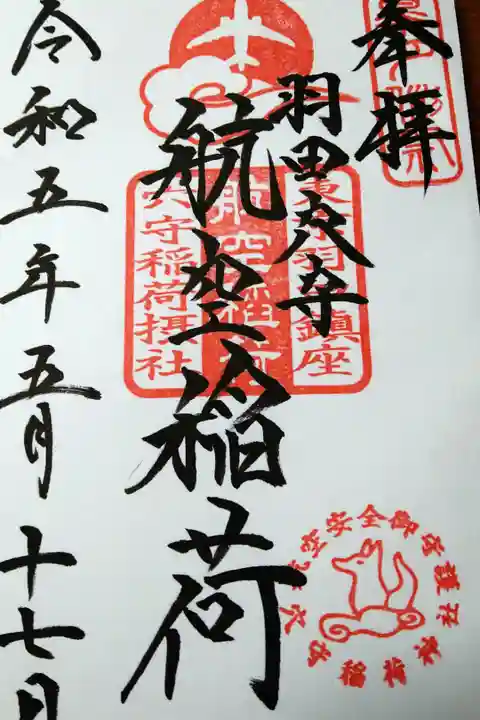 奉拝
羽田穴守
航空稲荷
令和五年五月十七日
東京羽田鎮座
航空稲荷
穴守稲荷摂社
航空安全御守護 穴守稲荷神社